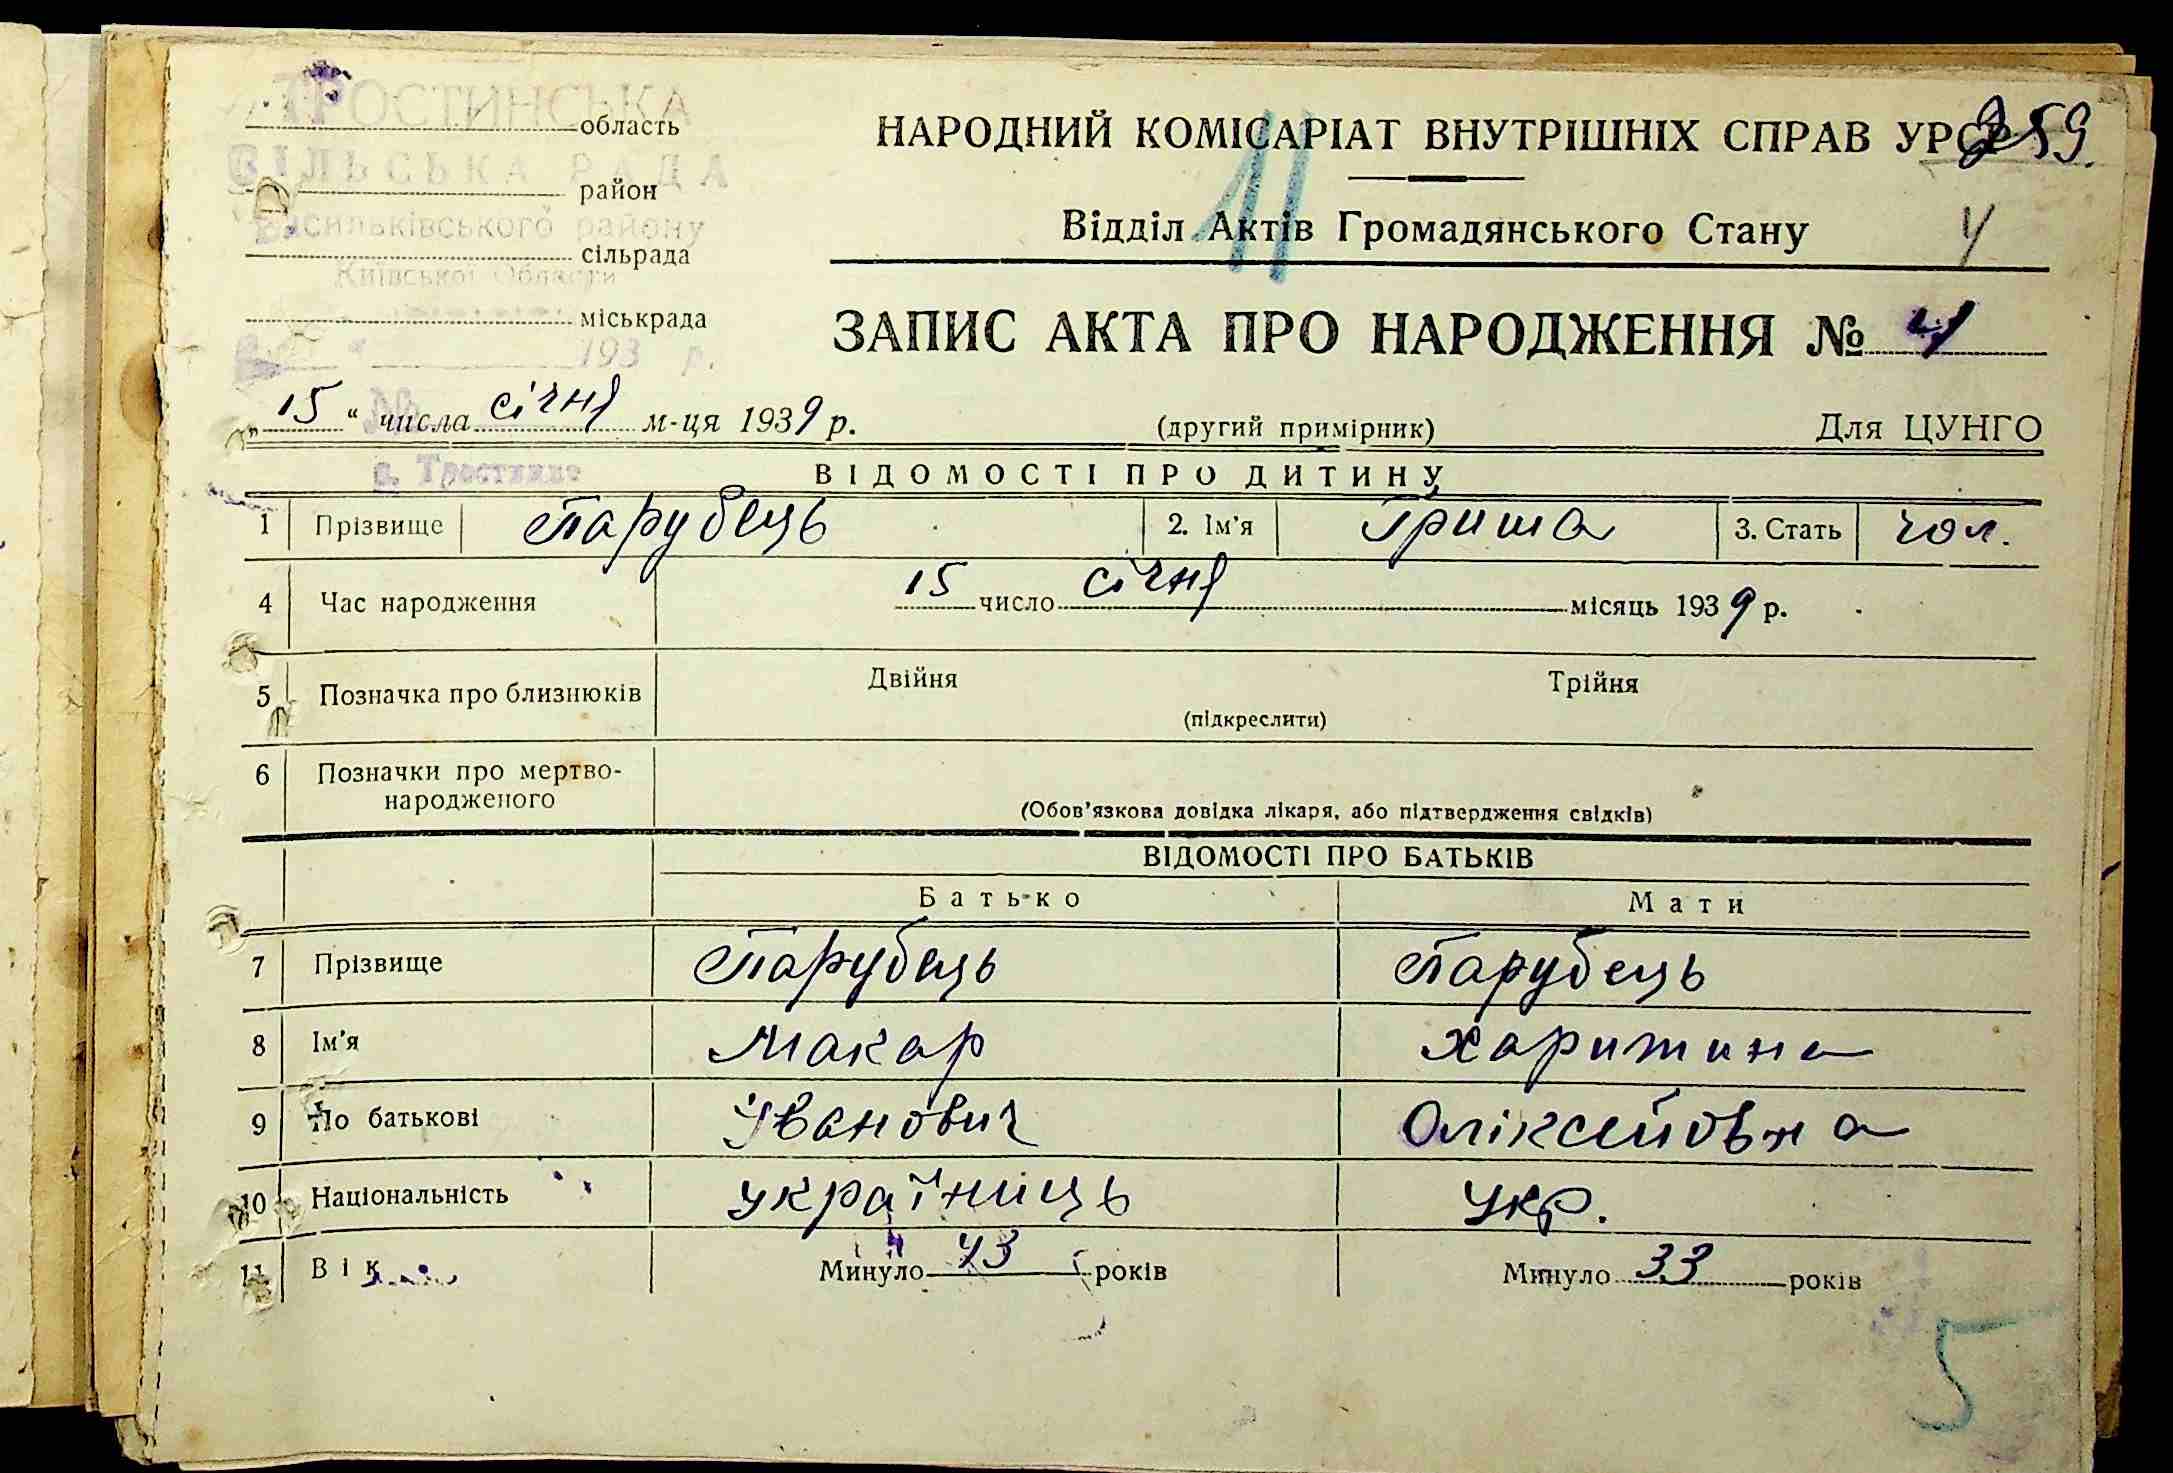 ТРОСТИНСЬКА
область
СІЛЬСЬКА РАДА
район
Васильківського району
сільрада
Київської Области
міськрада
193 р.
№
с. Тростинка
НАРОДНИЙ КОМІСАРІАТ ВНУТРІШНІХ СПРАВ УРСР
259.
11
Відділ Актів Громадянського Стану
4
ЗАПИС АКТА ПРО НАРОДЖЕННЯ № 4
„ 15 “ числа січня м-ця 1939 р. (другий примірник) Для ЦУНГО
ВІДОМОСТІ ПРО ДИТИНУ
1 Прізвище Парубець 2. Ім'я Гриша 3. Стать чол.
4 Час народження 15 число січня місяць 1939 р.
5 Позначка про близнюків Двійня Трійня
(підкреслити)
6 Позначки про мертво-
народженого
(Обов'язкова довідка лікаря, або підтвердження свідків)
ВІДОМОСТІ ПРО БАТЬКІВ
Батько Мати
7 Прізвище Парубець Парубець
8 Ім'я Макар Харитина
9 По батькові Іванович Оліксейовна
10 Національність україниць Укр.
11 Вік Минуло 43 років Минуло 33 років
5